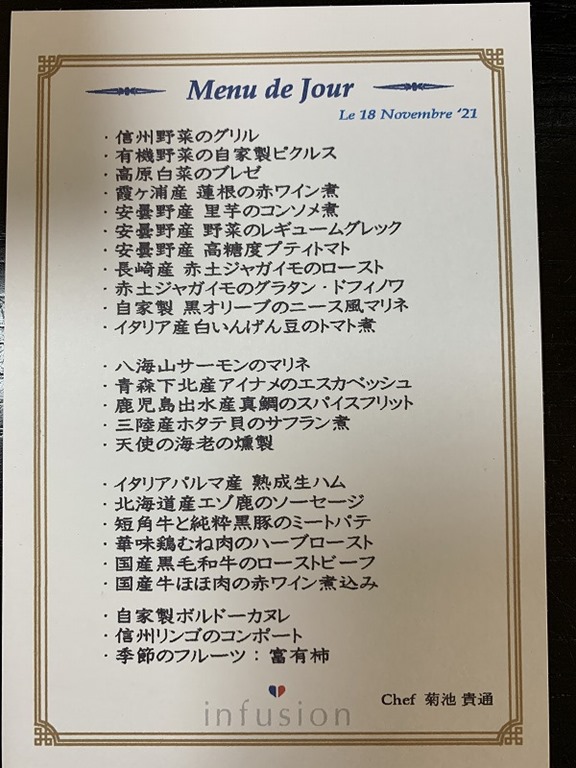 Menu de Jour
Le 18 Novembre ‘21
・信州野菜のグリル
・有機野菜の自家製ピクルス
・高原白菜のブレゼ
・霞ヶ浦産 蓮根の赤ワイン煮
・安曇野産 里芋のコンソメ煮
・安曇野産 野菜のレギュームグレック
・安曇野産 高糖度プティトマト
・長崎産 赤土ジャガイモのロースト
・赤土ジャガイモのグラタン・ドフィノワ
・自家製 黒オリーブのニース風マリネ
・イタリア産白いんげん豆のトマト煮
・八海山サーモンのマリネ
・青森下北産アイナメのエスカベッシュ
・鹿児島出水産真鯛のスパイスフリット
・三陸産ホタテ貝のサフラン煮
・天使の海老の燻製
・イタリアパルマ産 熟成生ハム
・北海道産エゾ鹿のソーセージ
・短角牛と純粋黒豚のミートパテ
・華味鶏むね肉のハーブロースト
・国産黒毛和牛のローストビーフ
・国産牛ほほ肉の赤ワイン煮込み
・自家製ボルドーカヌレ
・信州リンゴのコンポート
・季節のフルーツ：富有柿
Chef 菊池 貴通
infusion